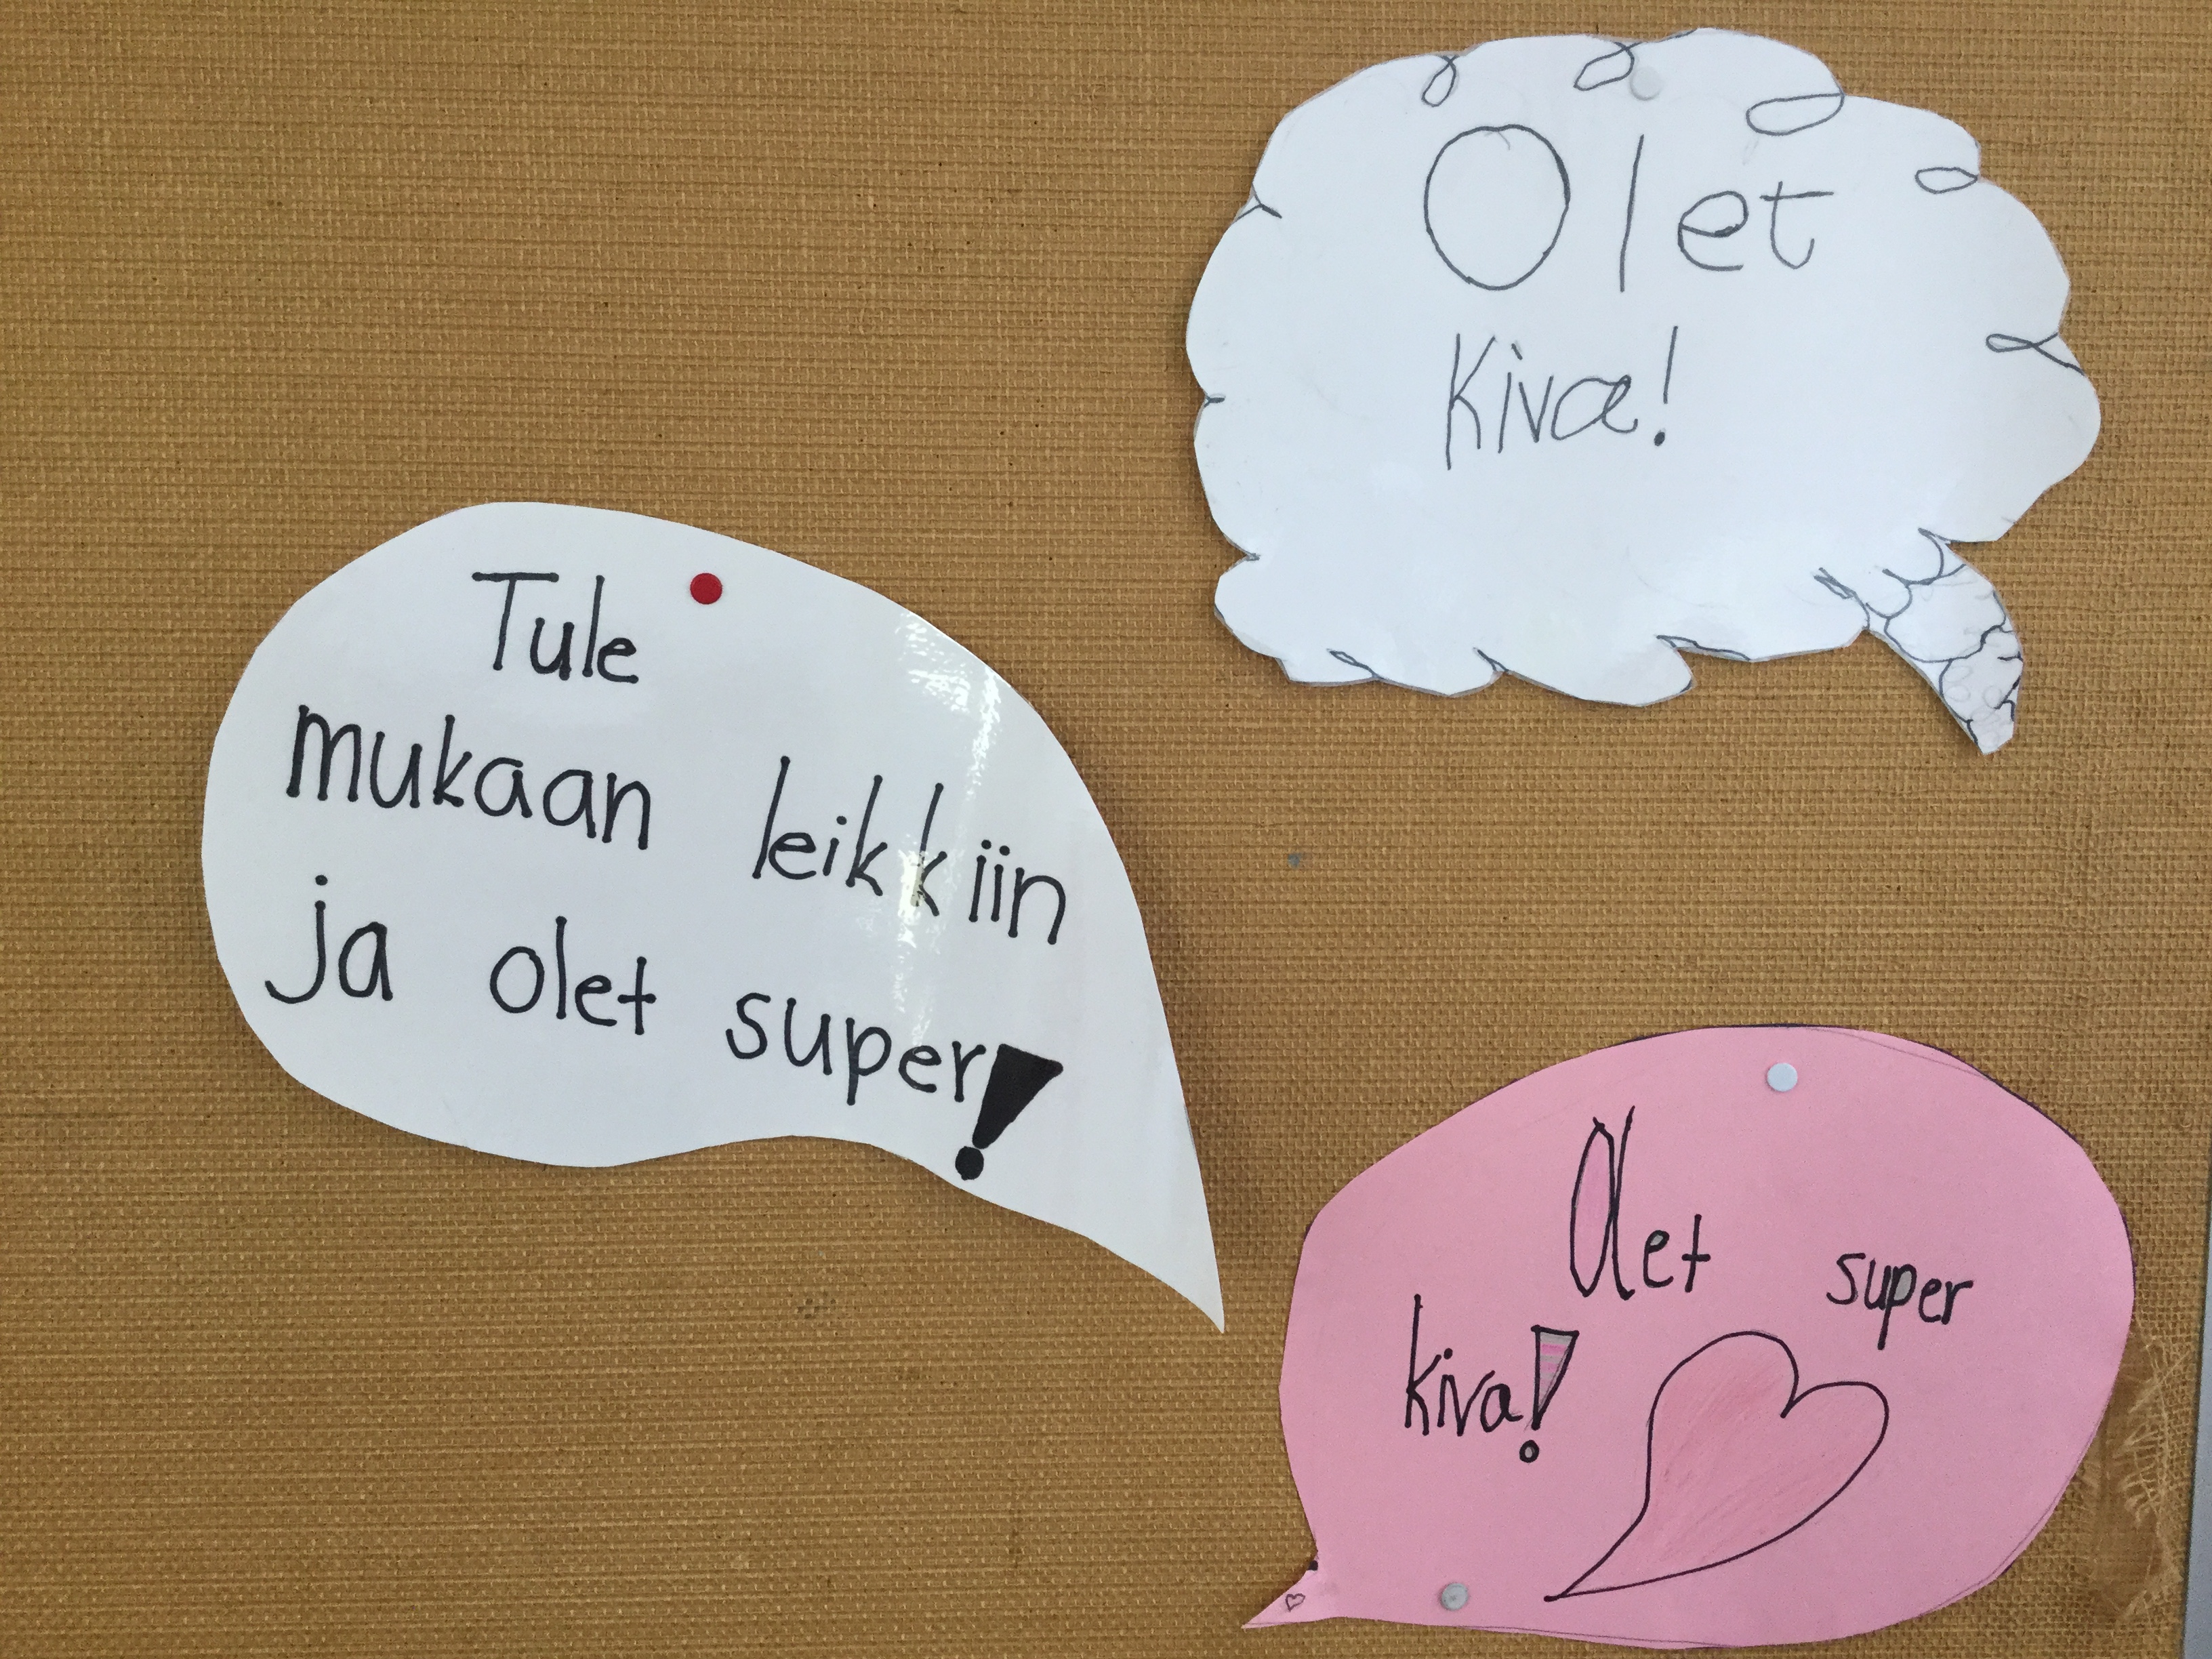 Olet
Kiva!
Tule
mukaan leikkiin
ja olet super!
Olet super
kiva!